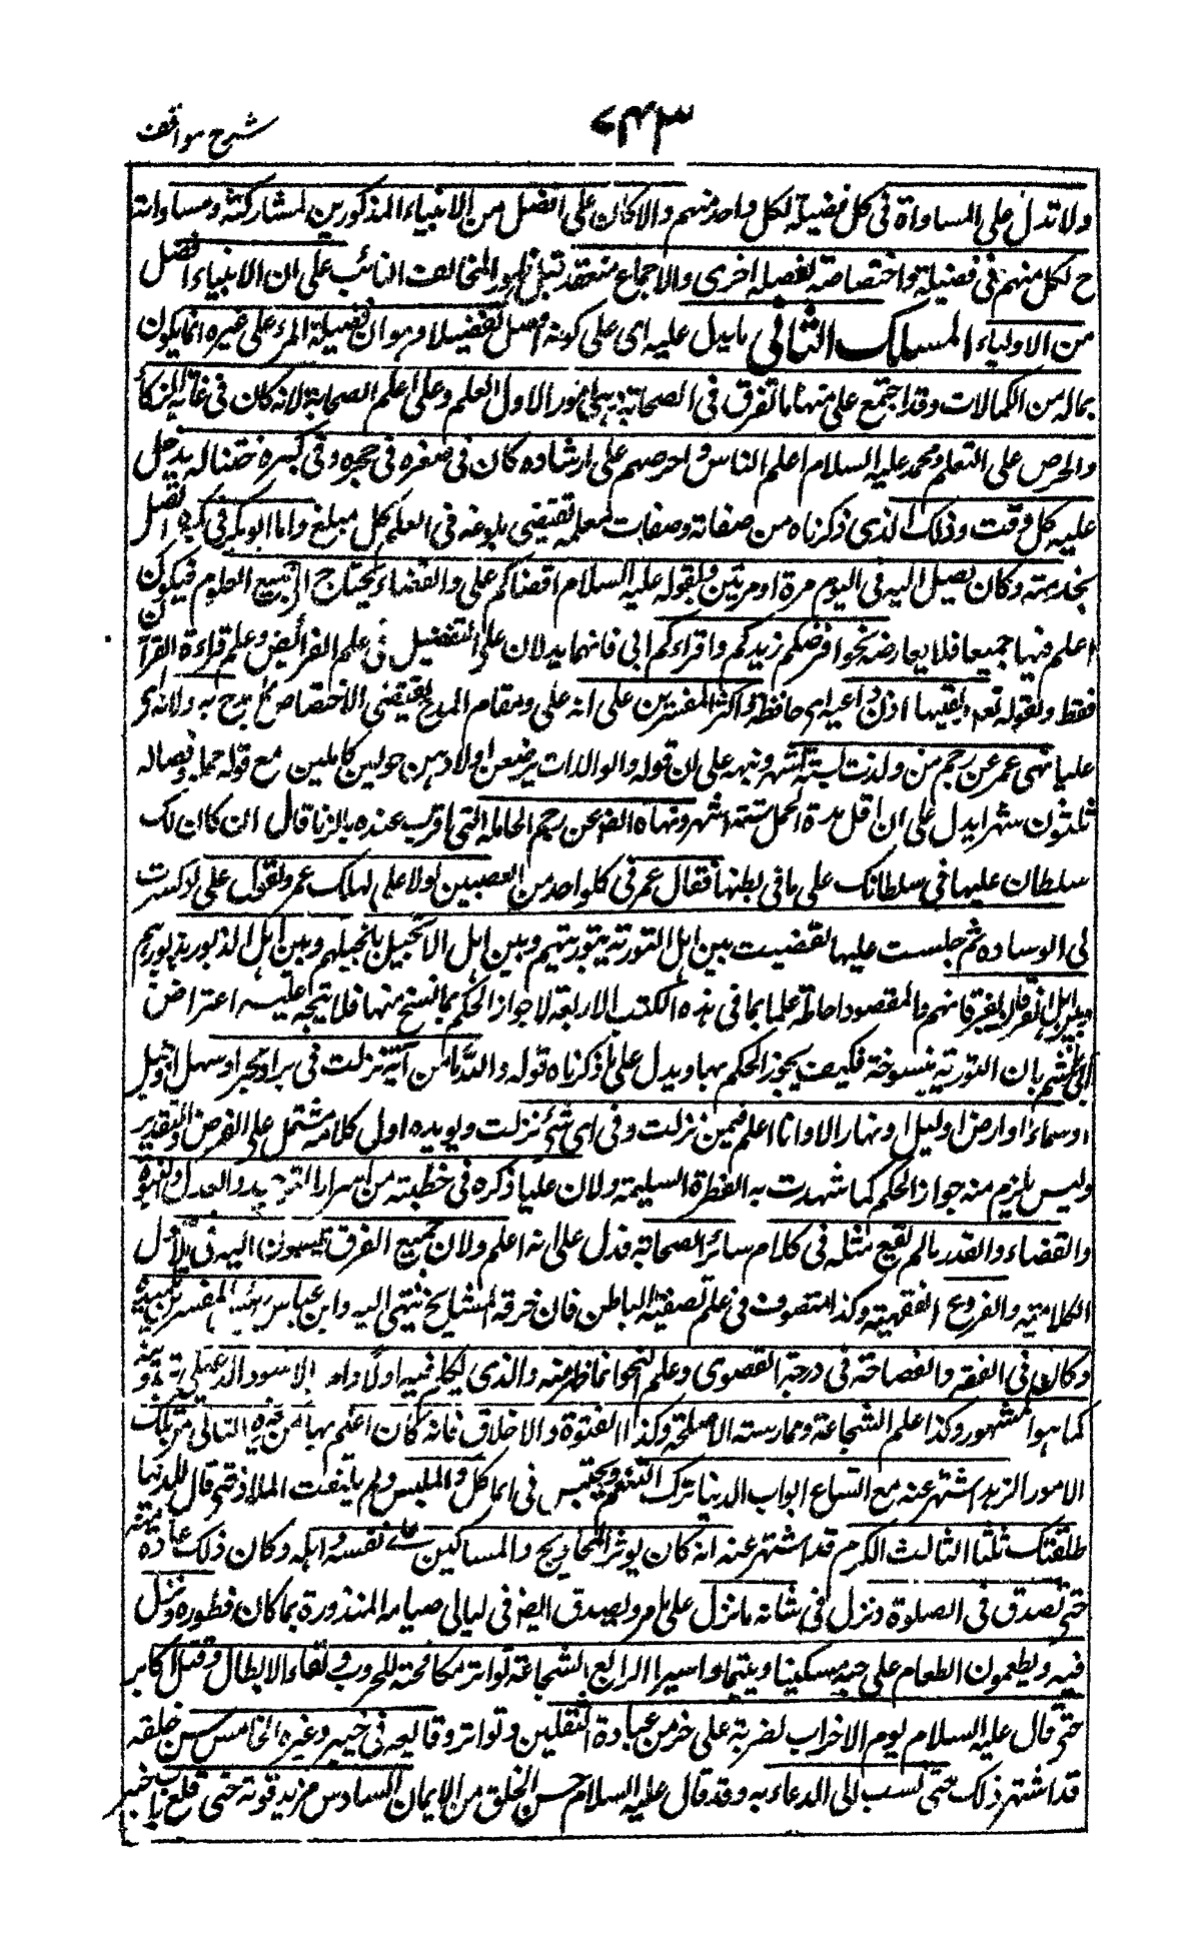 شرح مواقف
٧٤٣
ولا تدل على المساواة فى كل فضيلة لكل واحد منهم والا كان على افضل من الانبياء المذكورين لمشاركته ومساواته
ح لكل منهم فى فضيلته واختصاصه بفضيلة اخرى والاجماع منعقد قبل ظهور المخالف الثائب على ان الانبياء افضل
من الاولياء المسلك الثانى ما يدل عليه اى على كونه افضل تفضيلا وهو ان فضيلة المرء على غيره انما يكون
بماله من الكمالات وقد اجتمع على منها ما تفرق فى الصحابة وهى امور الاول العلم وعلى اعلم الصحابة لانه كان فى غاية الذكاء
والحرص على التعلم ومحمد عليه السلام اعلم الناس واحرصهم على ارشاده كان فى صغره فى حجره وفى كبره ختنا له يدخل
عليه كل وقت وذلك الذى ذكرناه من صفاته وصفات معلمه تقتضى بلوغه فى العلم كل مبلغ واما ابو بكر فى كبره اتصل
بخدمته وكان يصل اليه فى اليوم مرة او مرتين ولقوله عليه السلام اقضاكم على والقضاء يحتاج الى جميع العلوم فيكون
اعلم فيها جميعا فلا يعارضه نحو افرضكم زيدكم واقراءكم ابى فانهما يدلان على التفضيل فى علم الفرائض وعلم قراءة القرآن
فقط ولقوله تعم وتعيها اذن واعية اى حافظة واكثر المفسرين على انه على ومقام المدح يقتضى الاختصاص بما مدح به ولانه اى
عليا نهى عمر عن رجم من ولدت لستة اشهر ونبهه على ان قوله والوالدات يرضعن اولادهن حولين كاملين مع قوله حمله وفصاله
ثلثون شهرا يدل على ان اقل مدة الحمل ستة اشهر ونهاه ايضا عن رجم الحاملة التى اقرت عنده بالزنا قال ان كان لك
سلطان عليها فما سلطانك على ما فى بطنها فقال عمر فى كل واحد من القضيتين لولا على لهلك عمر ولقول على لو كسرت
لى الوسادة ثم جلست عليها لقضيت بين اهل التورته بتوريتهم وبين اهل الانجيل بانجيلهم وبين اهل الزبور بزبورهم
وبين اهل الفرقان بفرقانهم والمقصود احاطة علمه بما فى هذه الكتب الاربعة لا جواز الحكم بما نسخ منها فلا يتجه عليه اعتراض
ابى هاشم بان التورته منسوخة فكيف يجوز الحكم بها ويدل على ما ذكرناه قوله والله ما من آية نزلت فى بر او بحر او سهل او جبل
او سماء او ارض او ليل او نهار الا وانا اعلم فيمن نزلت وفى اى شئ نزلت ويويده اول كلامه مشتمل على الفرض والتقدير
وليس يلزم منه جواز الحكم كما شهدت به الفطرة السليمة ولان عليا ذكره فى خطبته من اسرار التوحيد والعدل والنبوة
والقضاء والقدر ما لم يقع مثله فى كلام سائر الصحابة فدل على انه اعلم ولان جميع الفرق ينتسبون اليه فى الاصول
الكلامية والفروع الفقهية وكذا المتصوفة فى علم تصفية الباطن فان خرقة المشايخ تنتهى اليه وابن عباس رئيس المفسرين تلميذه
وكان فى الفقه والفصاحة فى درجة القصوى وعلم النحو انما ظهر منه والذى تكلم فيه اولا وامر ابا الاسود الدئلى بتدوينه
كما هو المشهور وكذا علم الشجاعة وممارسة الاسلحة وكذا الفتوة والاخلاق فانه كان اعلم بها من غيره الثانى من تلك
الامور الزهد اشتهر عنه مع اتساع ابواب الدنيا ترك التنعم وتخشن فى الماكل والملبس ولم يلتفت الى الملاذ حتى قال للدنيا
طلقتك ثلثا الثالث الكرم قد اشتهر عنه انه كان يوثر المحاويج والمساكين على نفسه واهله وكان ذلك عادة منه
حتى تصدق فى الصلوة ونزل فى شانه ما نزل على ما مر وتصدق ايضا فى ليالى صيامه المنذورة بما كان فطوره ونزل
فيه ويطعمون الطعام على حبه مسكينا ويتيما واسيرا الرابع الشجاعة تواتر مكافحته للحروب ولقاء الابطال وقتل اكابر
حتى قال عليه السلام يوم الاحزاب لضربة على خير من عبادة الثقلين وتواتر وقايعه فى خيبر وغيره الخامس حسن خلقه
قد اشتهر ذلك حتى نسب الى الدعابه وقد قال عليه السلام حسن الخلق من الايمان السادس مزيد قوته حتى قلع باب خيبر